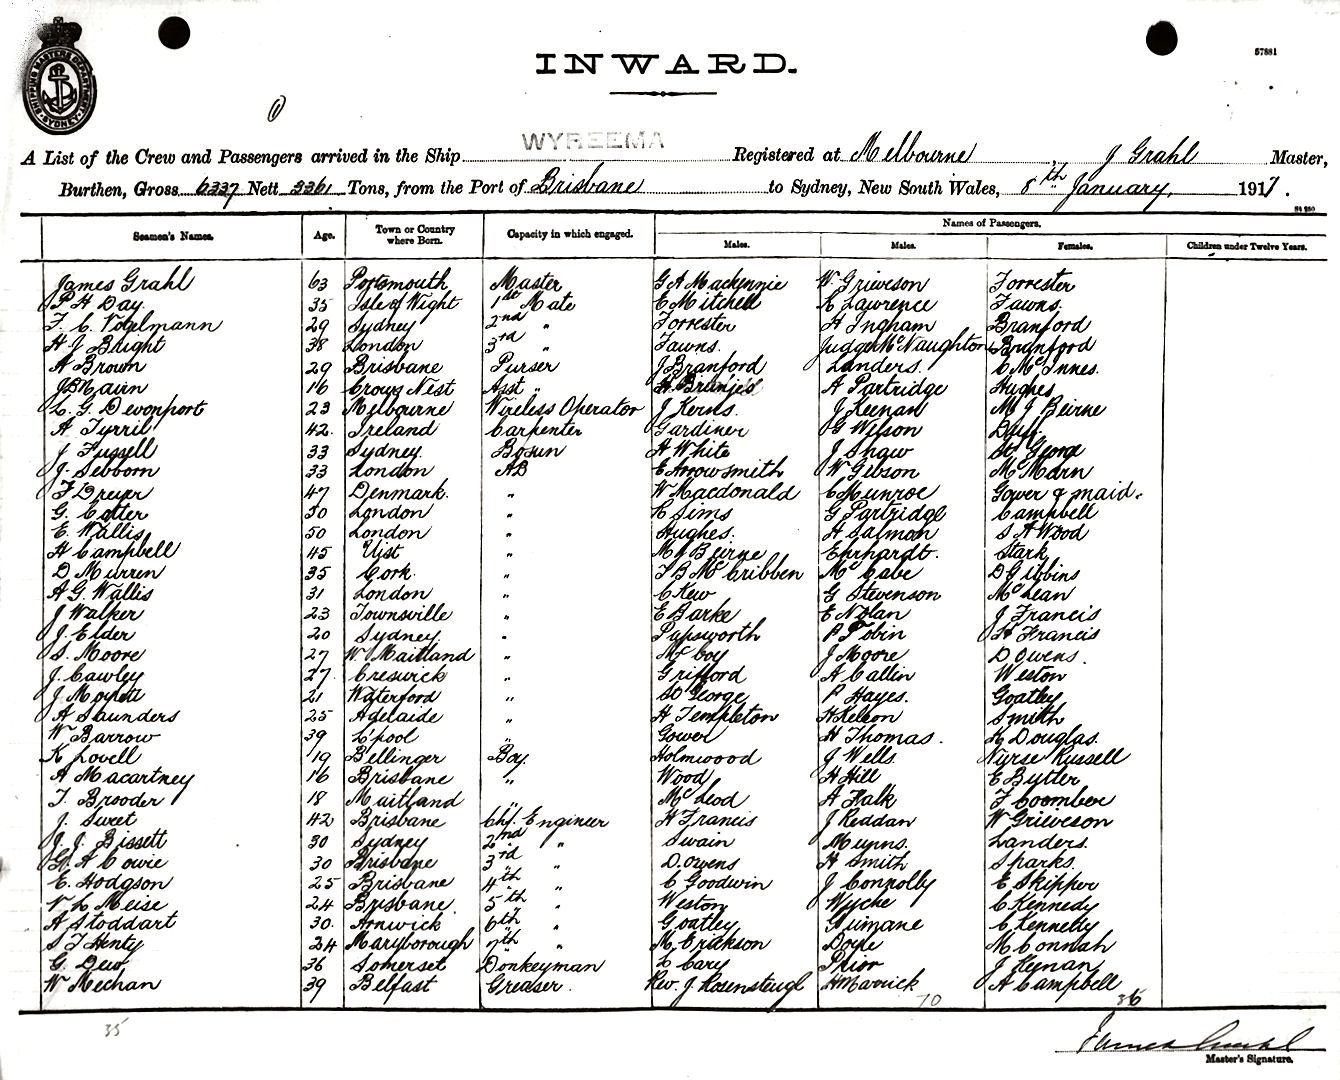 57881
SHIPPING MASTERS DEPARTMENT SYDNEY
INWARD.
WYREEMA
A List of the Crew and Passengers arrived in the Ship Registered at Melbourne, J Grahl Master,
Burthen, Gross 6337 Nett 3361 Tons, from the Port of Brisbane to Sydney, New South Wales, 8th January, 1917.
Names of Passengers.
Seamen's Names. Age. Town or Country where Born. Capacity in which engaged. Males. Males. Females. Children under Twelve Years.
James Grahl 63 Portsmouth Master G A Mackennie W Grieveson Forrester
P H Day 35 Isle of Wight 1st Mate E Mitchell R Lawrence Fawns.
F. C. Vogelmann 29 Sydney 2nd " Forrester H Ingham Branford
H J Bright 38 London 3rd " Fawns. Judge McNaughton Branford
A Brown 29 Brisbane Purser J Branford Landers. C McInnes.
J Mann 16 Crows Nest Asst " A Partridge Hughes
L. G Devonport 23 Melbourne Wireless Operator J Kerns. J Keenan M J Beirne
A Tyrril 42. Ireland Carpenter Gardiner G Wilson Duff.
J Fussell 33 Sydney. Bosun A White J Shaw St George
J. Sebborn 33 London AB E Arrowsmith W Gibson McMarn
F Dreyer 47 Denmark. " W Macdonald C Munroe Gower & maid.
G. Cotter 50 London " R Sims G Partridge Campbell
E. Wallis 50 London " Hughes. H Salmon S A Wood
H Campbell 45 Uist " M J Beirne Ehrhardt. Stark
D Murren 35 Cork. " T B McCribben McCabe D Gibbins
A G. Wallis 31 London " C Kew G Stevenson McLean
J Walker 23 Townsville " E Barke E Nolan J Francis
J. Elder 20 Sydney. " Papsworth P Tobin H Francis
S. Moore 27 W. Maitland " McCoy J Moore D Owens.
J. Cawley 27. Creswick " Grifford A Callin Weston
J Moyett 21 Waterford " St George P Hayes. Goatley
A Saunders 25 Adelaide " H Templeton H Keleon Smith
W Barrow 39 L'pool " Gower H Thomas. K Douglas.
K Lovell 19 Bellinger Boy. Holmwood J Wells. Nurse Russell
A Macartney 16 Brisbane " Wood H Hill E Butler
T. Brooder 18 Maitland " McLeod A Falk F Coomber
J. Sweet 42 Brisbane Chf. Engineer H Francis J Reddan W Grieveson
J. J. Bissett 30 Sydney 2nd " Swain Munns. Landers.
G. A Cowie 30 Brisbane 3rd " D. Owens H Smith Sparks.
E. Hodgson 25 Brisbane 4th " C Goodwin J Connolly E Skipper
V L Meise 24 Brisbane. 5th " Weston Wyche C Kennedy
A Stoddart 30. Arnwick 6th " Goatley Guimane C Kennelly
S T Henty 24 Maryborough 7th " M Erickson Doyle M Connah
G. Dew 36 Somerset Donkeyman L Cary Prior J Keenan
W Mechan 39 Belfast Greaser. Rev. J Rosenstengl H Marrick A Campbell
35 70 36
James Grahl
Master's Signature.